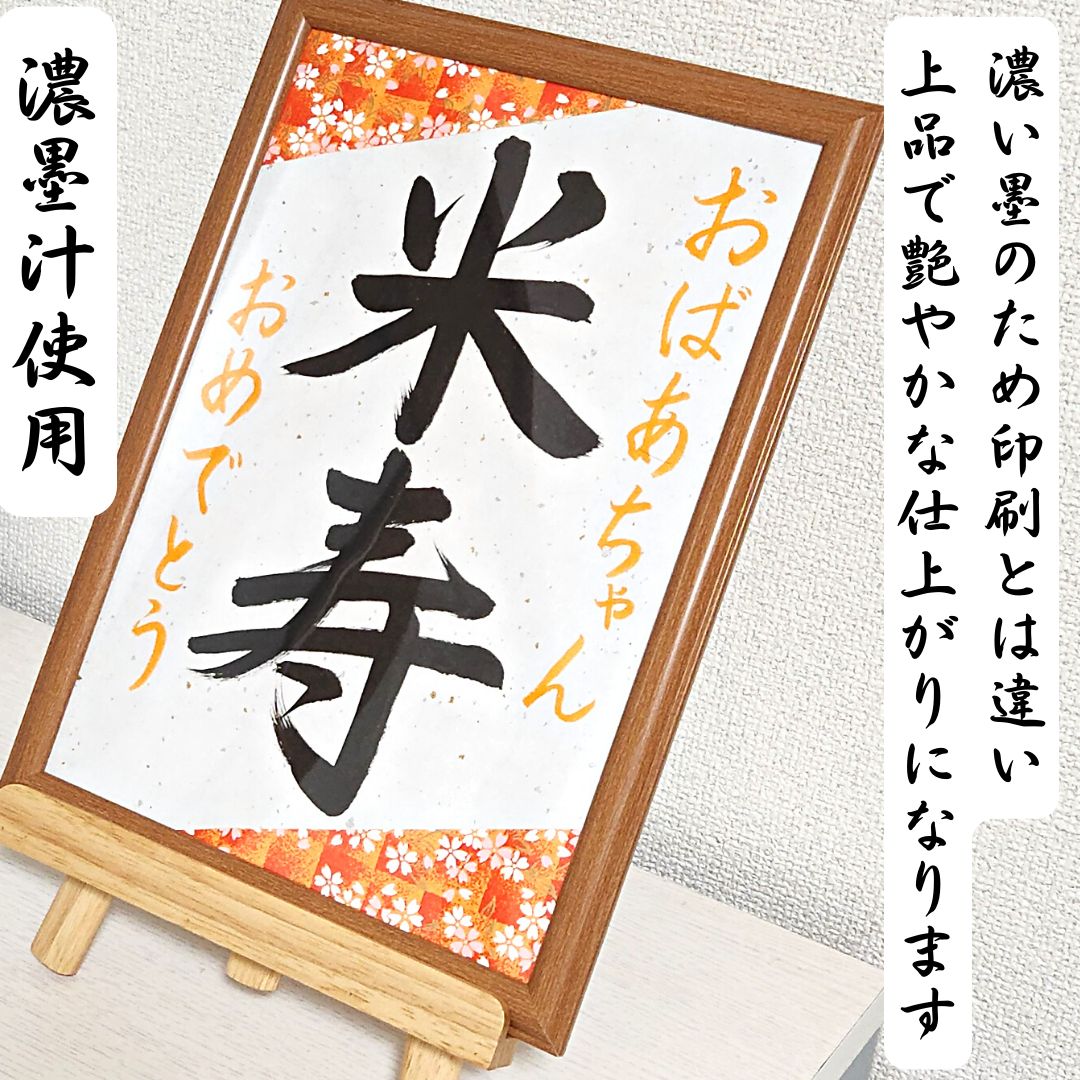 濃い墨のため印刷とは違い
上品で艶やかな仕上がりになります
おばあちゃん
米寿
おめでとう
濃墨汁使用